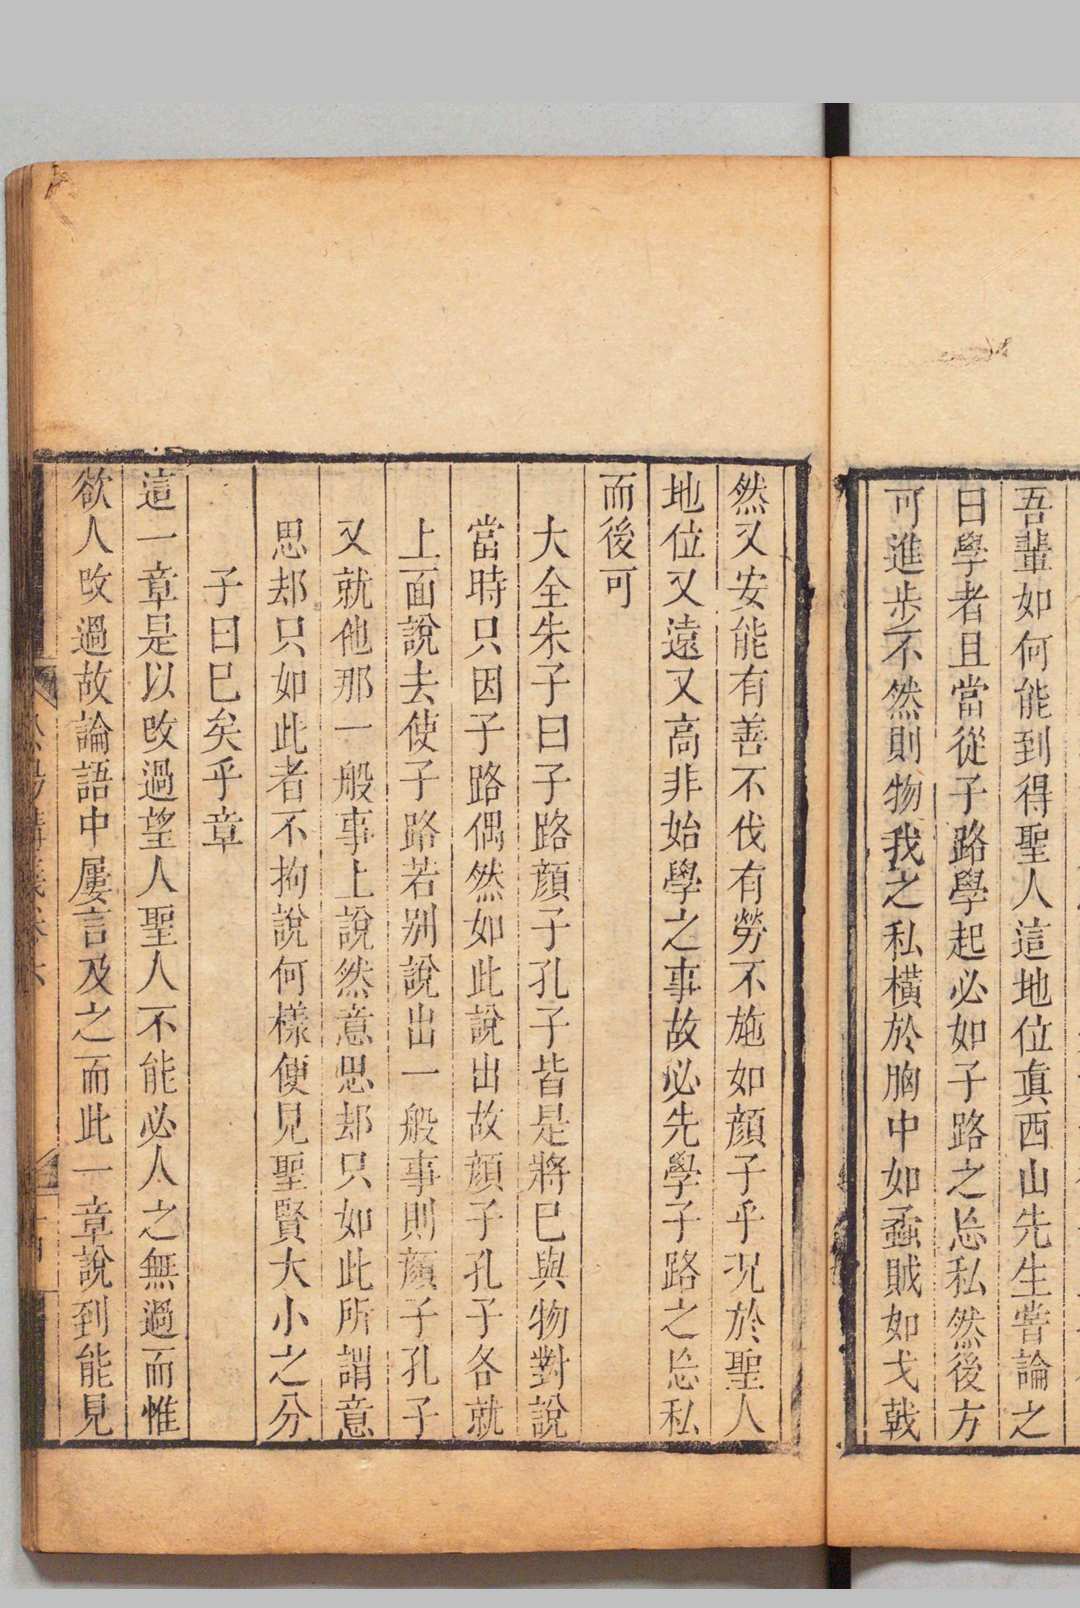 吾輩如何能到得聖人這地位真西山先生嘗論之
曰學者且當從子路學起必如子路之忘私然後方
可進步不然則物我之私橫於胸中如蟊賊如戈戟
然又安能有善不伐有勞不施如顏子乎况於聖人
地位又遠又高非始學之事故必先學子路之忘私
而後可
大全朱子曰子路顏子孔子皆是將已與物對說
當時只因子路偶然如此說出故顏子孔子各就
上面說去使子路若别說出一般事則顏子孔子
又就他那一般事上說然意思却只如此所謂意
思却只如此者不拘說何樣便見聖賢大小之分
子曰已矣乎章
這一章是以改過望人聖人不能必人之無過而惟
欲人改過故論語中屢言及之而此一章說到能見